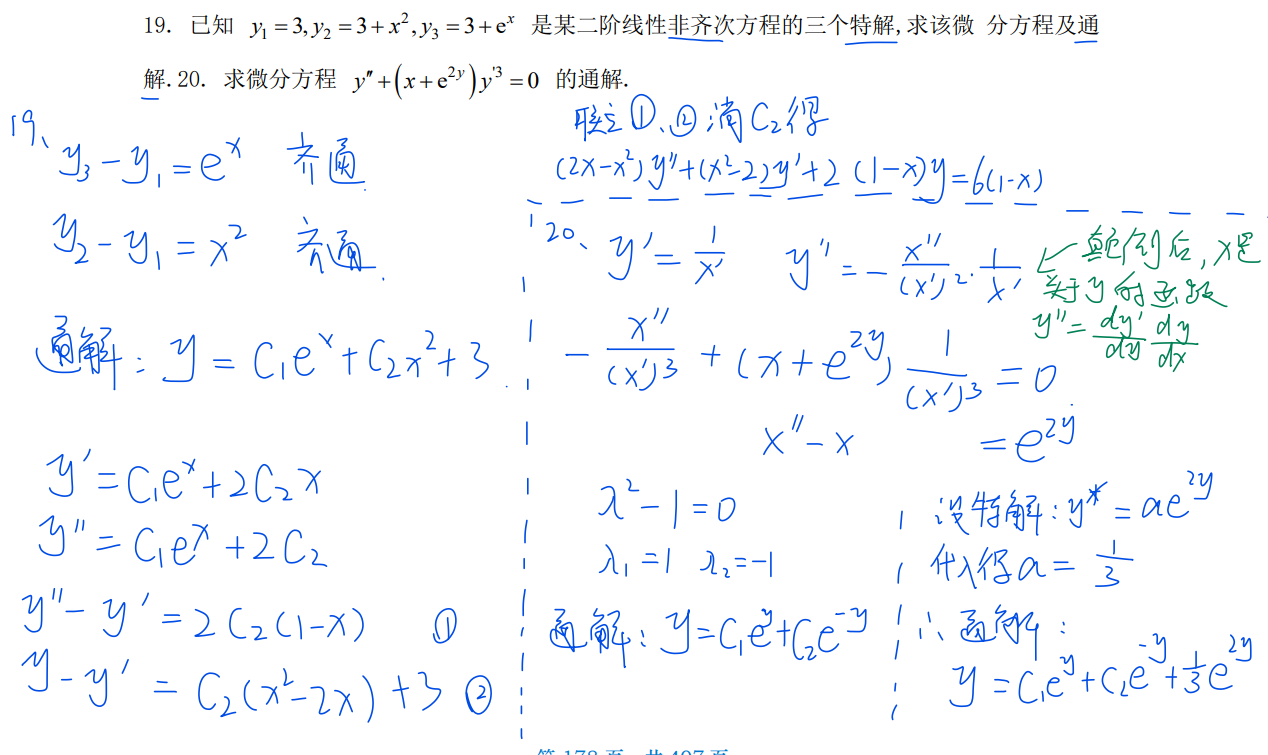 19. 已知 y₁ = 3, y₂ = 3 + x², y₃ = 3 + eˣ 是某二阶线性非齐次方程的三个特解,求该微 分方程及通
解. 20. 求微分方程 y″ + (x + e^{2y}) y'³ = 0 的通解.
19、
y₃ − y₁ = eˣ 齐通
y₂ − y₁ = x² 齐通
通解: y = C₁eˣ + C₂x² + 3
y′ = C₁eˣ + 2C₂x
y″ = C₁eˣ + 2C₂
y″ − y′ = 2C₂(1−x) ①
y − y′ = C₂(x²−2x) + 3 ②
联立①、②消C₂得
(2x−x²)y″+(x²−2)y′+2(1−x)y=6(1−x)
20、 y′ = 1/x′ y″ = − x″/(x′)² · 1/x′
颠倒后, x是
关于y的函数
y″ = dy′/dy dy/dx
− x″/(x′)³ + (x + e^{2y}) 1/(x′)³ = 0
x″ − x = e^{2y}
λ² − 1 = 0
λ₁ = 1 λ₂ = −1
通解: y = C₁e^y + C₂e^{−y}
设特解: y* = ae^{2y}
代入得 a = 1/3
∴ 通解:
y = C₁e^y + C₂e^{−y} + 1/3 e^{2y}
第 178 页，共 407 页